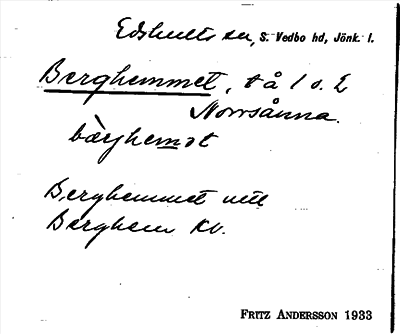 Edshults sn, S. Vedbo hd, Jönk. l.
Berghemmet, t å 1 o. 2
Norrsånna.
bärhemət
Berghemmet till
Berghem Kv.
FRITZ ANDERSSON 1933